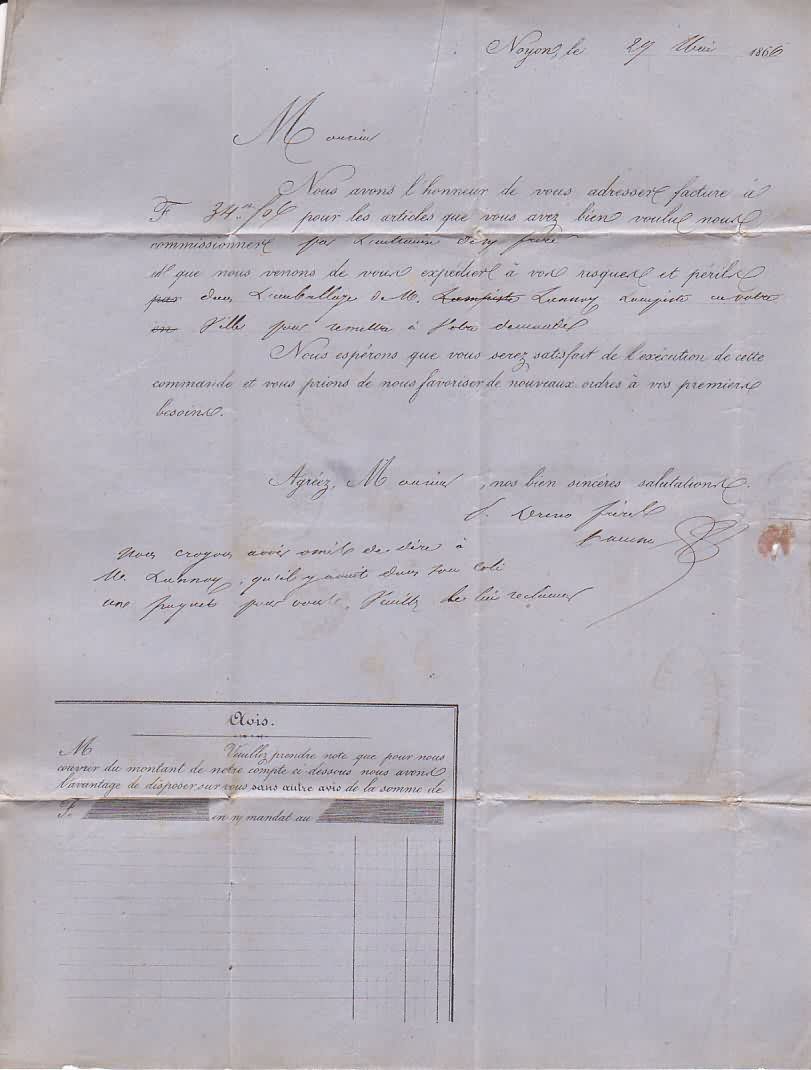 Noyon, le 29 Mai 1866
Monsieur
Nous avons l'honneur de vous adresser facture à
F 34 pour les articles que vous avez bien voulu nous
commissionner par frère
et que nous venons de vous expédier à vos risques et périls
par dans l'emballage de M. Lampiste Lannoy Lampiste en votre
en Ville pour remettre à
Nous espérons que vous serez satisfait de l'exécution de cette
commande et vous prions de nous favoriser de nouveaux ordres à vos premiers
besoins.
Agréez, Monsieur, nos bien sincères salutations.
frères
Nous croyons avoir omis de dire à
Mr. Lannoy, qu'il y avait dans son coli
une paquet pour vous. Veuillez le lui réclamer
Avis.
M Veuillez prendre note que pour nous
couvrir du montant de notre compte ci-dessous nous avons
l'avantage de disposer sur vous sans autre avis de la somme de
F. en n/ mandat au